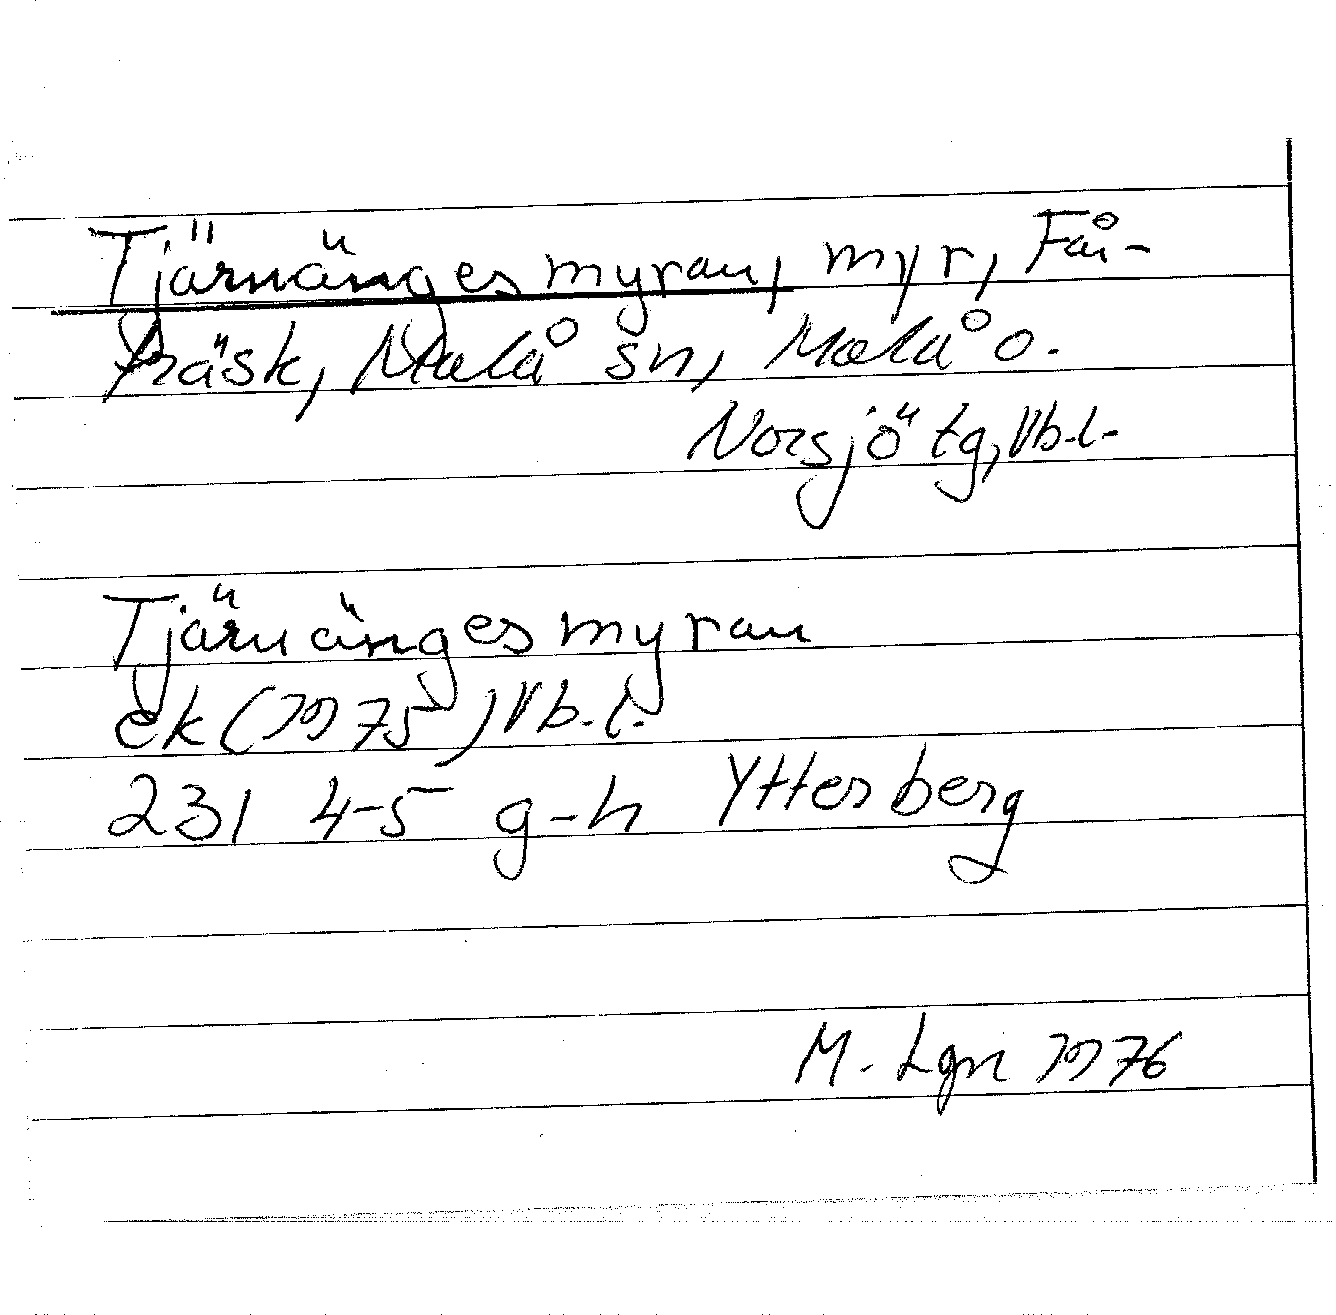 Tjärnängesmyran, myr, Får-
träsk, Malå sn, Malå o.
Norsjö tg, Vb.l.
Tjärnängesmyran
ek (1975) Vb.l.
231 4-5 g-h Ytterberg
M. Lgn 1976